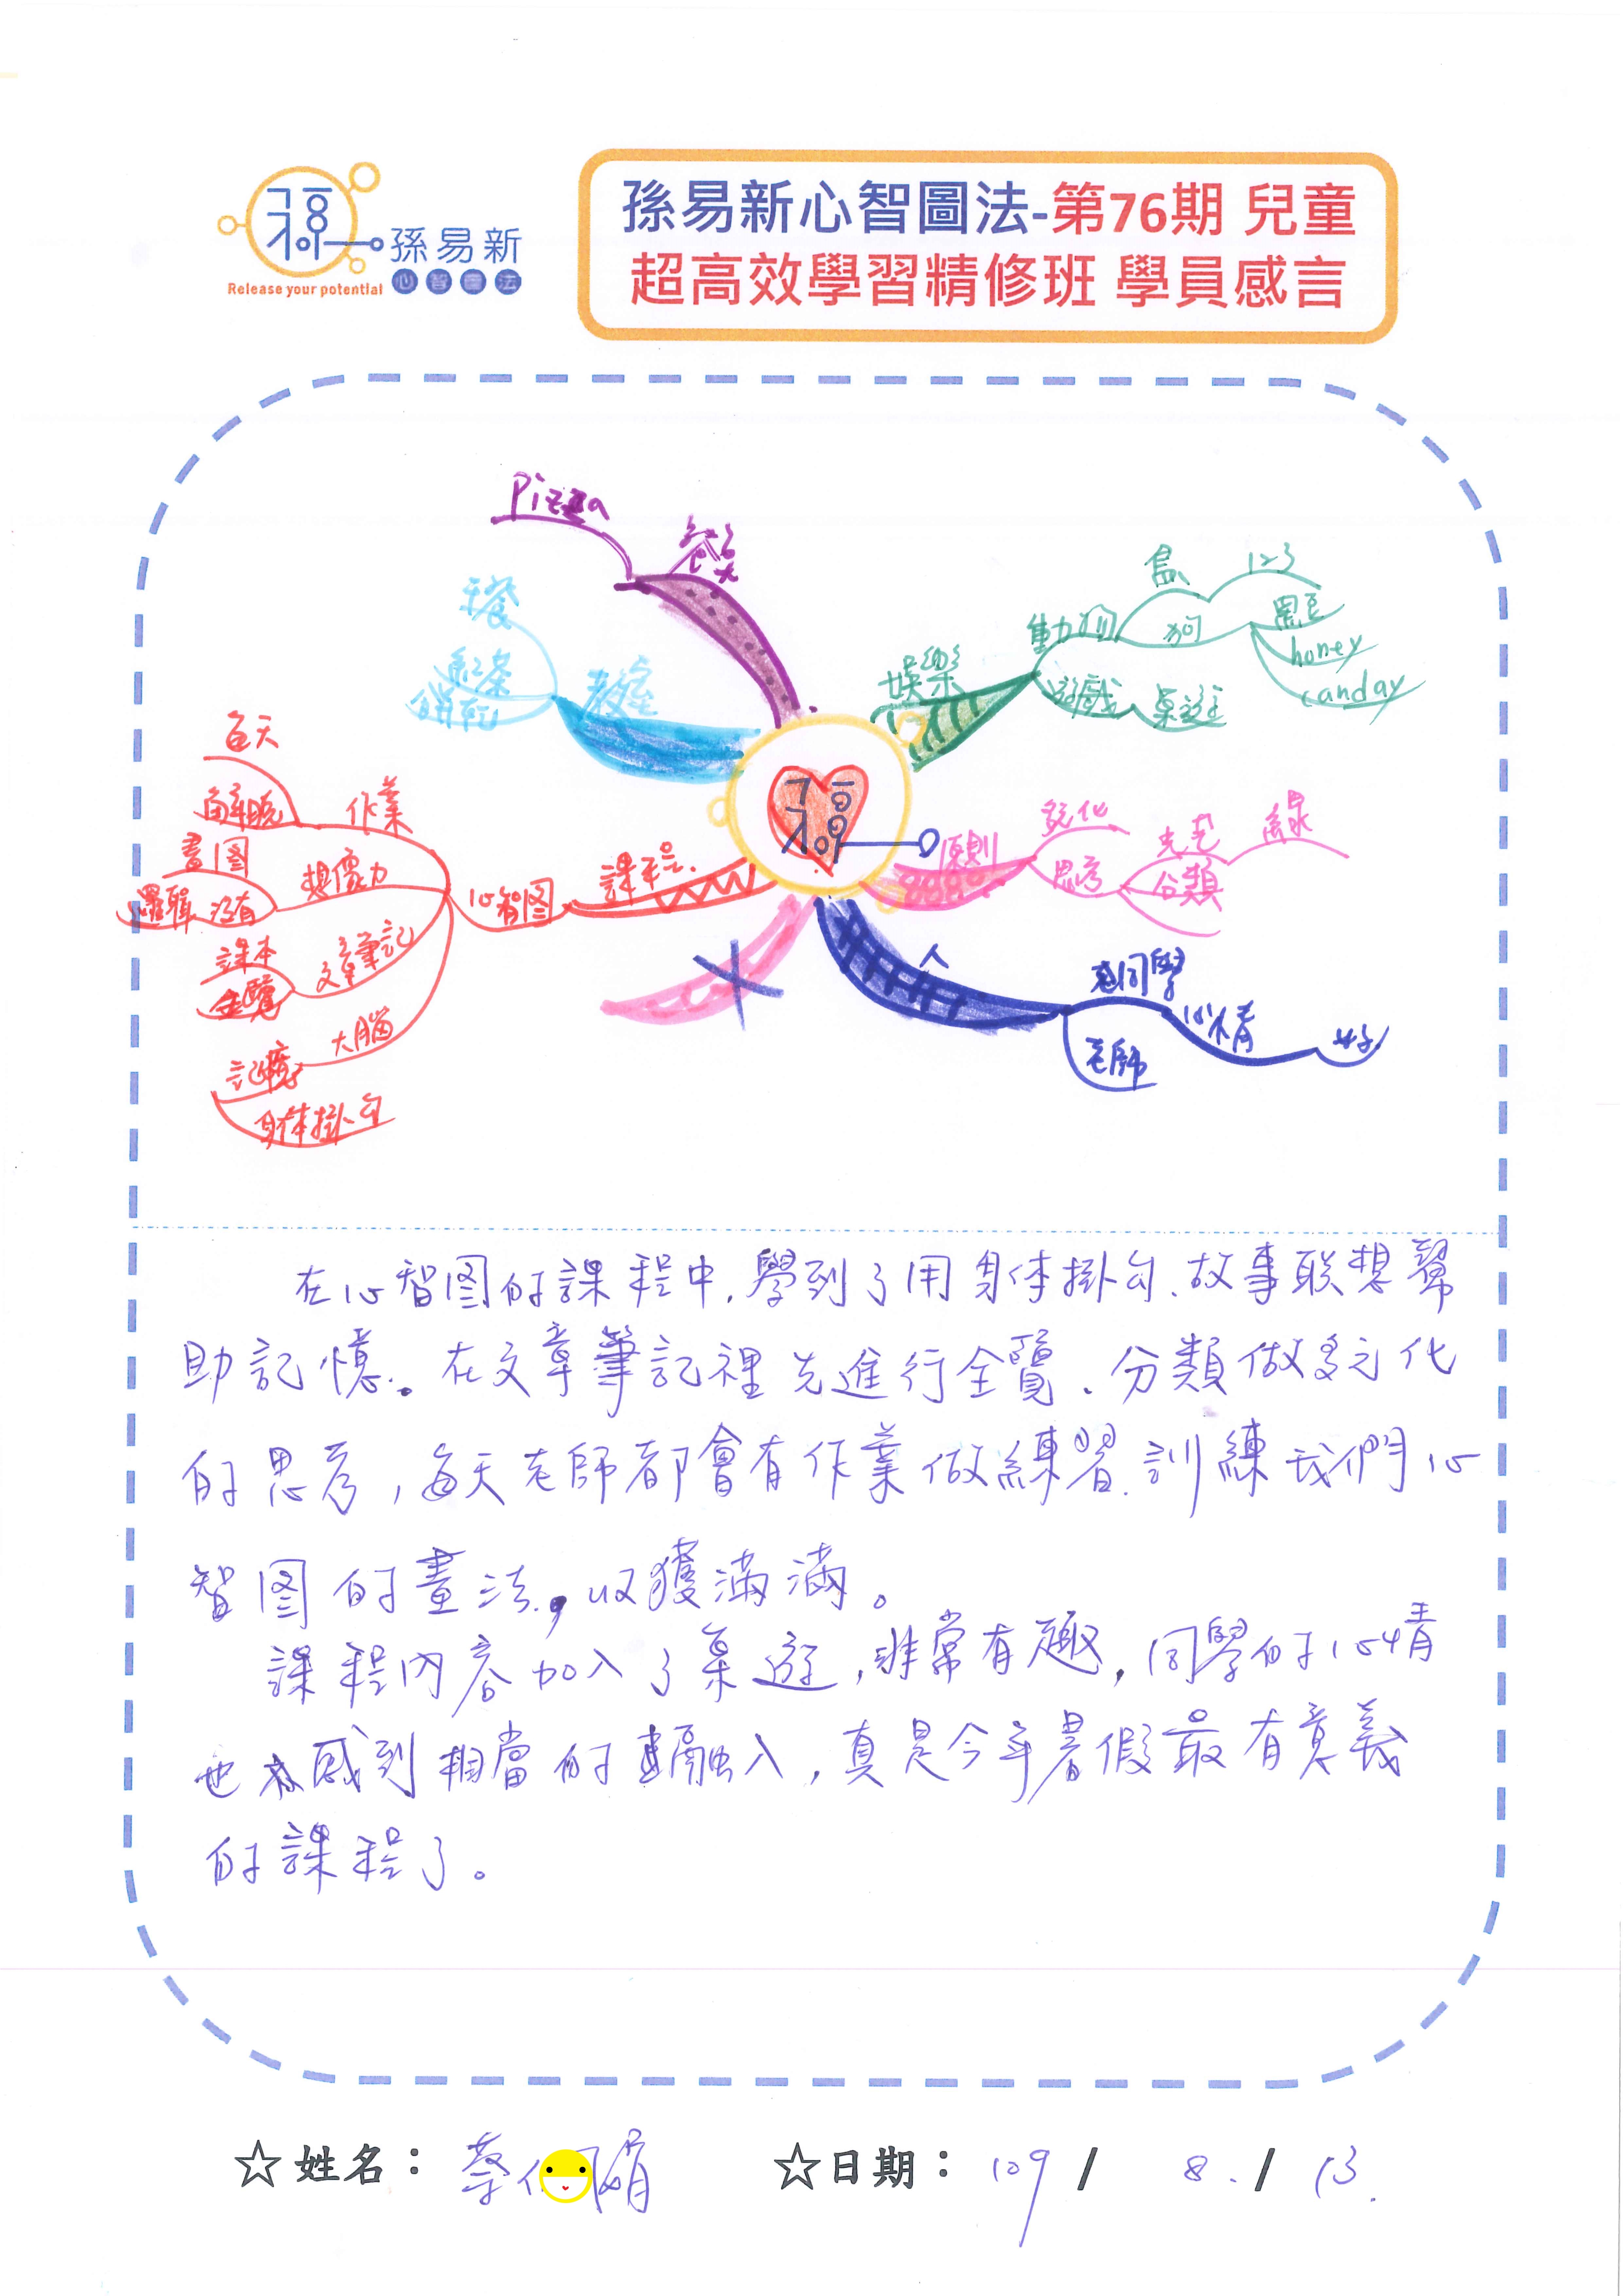 孫易新
心智圖法
Release your potential
孫易新心智圖法-第76期 兒童
超高效學習精修班 學員感言
Pizza
教室
娛樂
動物
狗
123
黑豆
honey
canday
遊戲
桌遊
每天
解說
作業
畫图
邏輯
沒有
想像力
課本
全覽
文章筆記
大腦
記憶
身体掛勾
心智图
課程.
原則
思考
分類
人
同學
心情
好
老師
在心智图的課程中,學到了用身体掛勾、故事联想幫
助記憶。在文章筆記裡先進行全覽、分類做多元化
的思考,每天老師都會有作業做練習、訓練我們心
智图的畫法,收獲滿滿。
課程內容加入了桌遊,非常有趣,同學的心情
也感到相當的融入,真是今年暑假最有意義
的課程了。
☆姓名: 蔡
☆日期: 109 / 8. / 13.